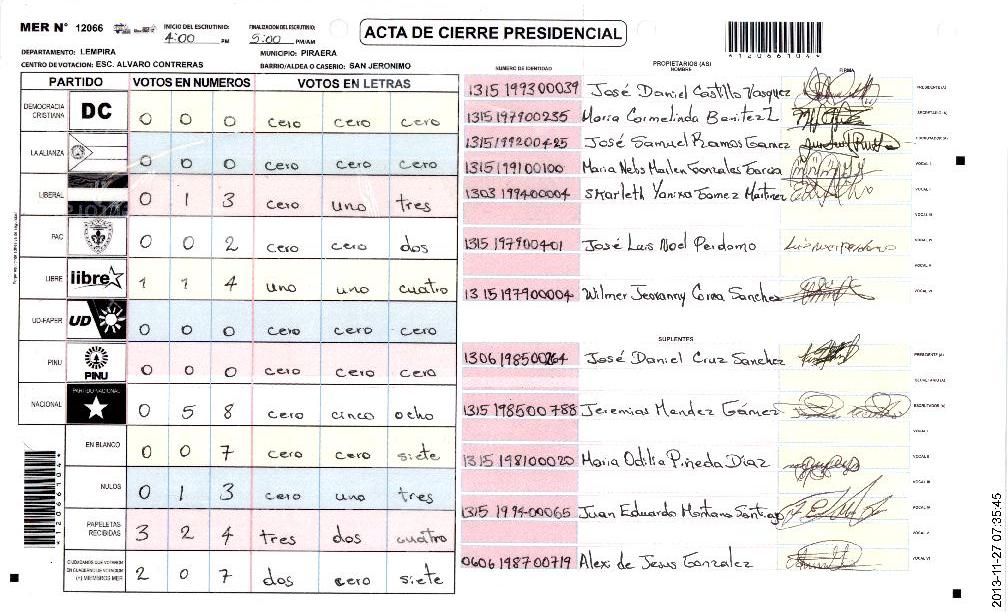 MER N° 12066
INICIO DEL ESCRUTINIO: 4:00 PM
FINALIZACION DEL ESCRUTINIO: 5:00 PM/AM
ACTA DE CIERRE PRESIDENCIAL
*12066104*
DEPARTAMENTO: LEMPIRA
MUNICIPIO: PIRAERA
CENTRO DE VOTACION: ESC. ALVARO CONTRERAS
BARRIO/ALDEA O CASERIO: SAN JERONIMO
PARTIDO VOTOS EN NUMEROS VOTOS EN LETRAS
DEMOCRACIA CRISTIANA DC 0 0 0 cero cero cero
LA ALIANZA 0 0 0 cero cero cero
LIBERAL 0 1 3 cero uno tres
PAC 0 0 2 cero cero dos
LIBRE libre 1 1 4 uno uno cuatro
UD-FAPER UD 0 0 0 cero cero cero
PINU PINU 0 0 0 cero cero cero
NACIONAL PARTIDO NACIONAL 0 5 8 cero cinco ocho
EN BLANCO 0 0 7 cero cero siete
NULOS 0 1 3 cero uno tres
PAPELETAS RECIBIDAS 3 2 4 tres dos cuatro
CIUDADANOS QUE VOTARON EN CUADERNO DE VOTACION (+) MIEMBROS MER 2 0 7 dos cero siete
NUMERO DE IDENTIDAD
PROPIETARIOS (AS)
NOMBRE
FIRMA
1315 199300039 José Daniel Castillo Vasquez PRESIDENTE (A)
1315 197900235 Maria Carmelinda Benitez L SECRETARIO (A)
1315199200425 José Samuel Ramos Gamez ESCRUTADOR (A)
1315199100100 Maria Nelis Mailen Gonzales Garcia VOCAL I
1303 199400004 Skarleth Yanixa Gomez Martinez VOCAL II
VOCAL III
1315 197900401 José Luis Noel Perdomo VOCAL IV
VOCAL V
1315197900004 Wilmer Jeovanny Corea Sanchez VOCAL VI
SUPLENTES
1306198500264 José Daniel Cruz Sanchez PRESIDENTE (A)
SECRETARIO (A)
1315 198500788 Jeremias Mendez Gámez ESCRUTADOR (A)
VOCAL I
1315 198100020 Maria Odilia Piñeda Díaz VOCAL II
VOCAL III
1315 199400065 Juan Eduardo Montano Santiago VOCAL IV
VOCAL V
0606198700719 Alex de Jesus Gonzalez VOCAL VI
2013-11-27 07:35:45